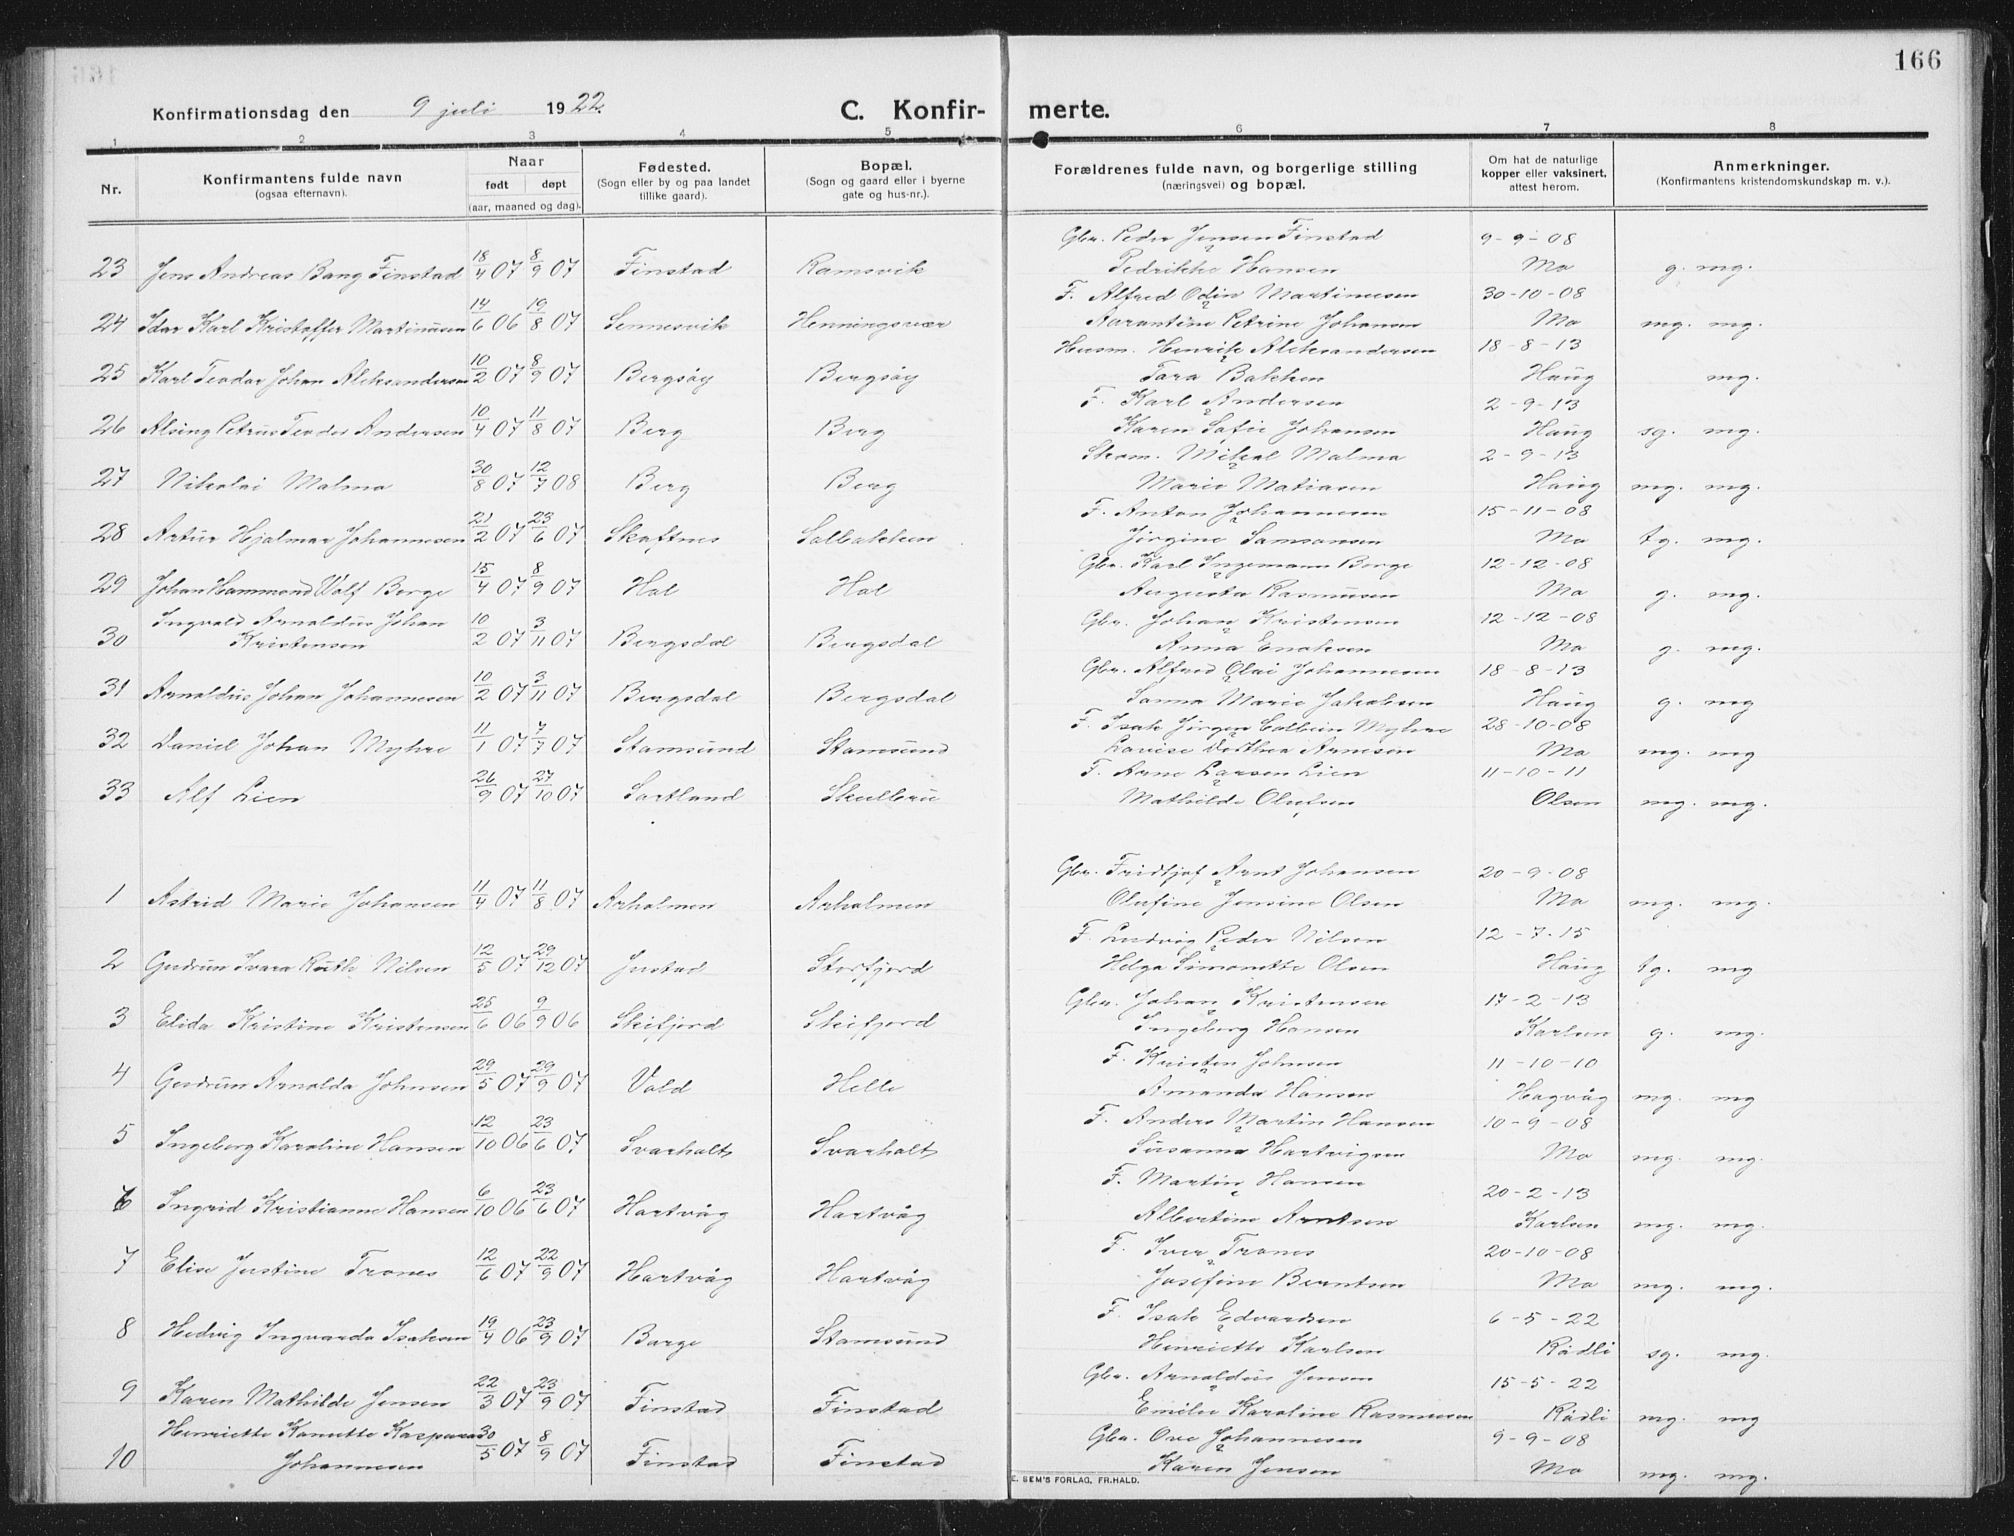 166
Konfirmationsdag den 9 juli 1922. C. Konfir- merte.
1 2 3 4 5 6 7 8
Nr. Konfirmantens fulde navn (ogsaa efternavn). Naar født døpt (aar, maaned og dag). Fødested. (Sogn eller by og paa landet tillike gaard). Bopæl. (Sogn og gaard eller i byerne gate og hus-nr.). Forældrenes fulde navn, og borgerlige stilling (næringsvei) og bopæl. Om hat de naturlige kopper eller vaksinert, attest herom. Anmerkninger. (Konfirmantens kristendomskundskap m. v.).
Gbr. Peder Jensen Finstad 9-9-08
23 Jens Andreas Bang Finstad 18/4 07 8/9 07 Finstad Ramsvik Pedrikke Hansen Mo g. mg.
F. Alfred Odin Martinusen 30-10-08
24 Idar Karl Kristoffer Martinusen 14/6 06 19/8 07 Sennesvik Henningsvær Aarantine Petrine Johansen Mo mg. mg.
Husm. Henrik Aleksandersen 18-8-13
25 Karl Teodor Johan Aleksandersen 10/2 07 8/9 07 Bergsøy Bergsøy Tara Bakken Haug mg.
F. Karl Andersen 2-9-13
26 Alsing Petrus Teodor Andersen 10/4 07 11/8 07 Berg Berg Karen Sofie Johansen Haug sg. mg.
Skom. Mikal Malmo 2-9-13
27 Nikolai Malmo 30/8 07 12/7 08 Berg Berg Marie Matiasen Haug mg. mg.
F. Anton Johannesen 15-11-08
28 Artur Hjalmar Johannesen 21/2 07 23/6 07 Skaftnes Solbakken Jørgine Samsonsen Mo tg. mg.
Gbr. Karl Ingemann Borge 12-12-08
29 Johan Hammond Wolf Borge 15/4 07 8/9 07 Hol Hol Augusta Rasmussen Mo g. mg.
Ingvald Arnoldus Johan Gbr. Johan Kristensen 12-12-08
30 Kristensen 10/2 07 3/11 07 Bergsdal Bergsdal Anna Enoksen Mo g. mg.
Gbr. Alfred Olai Johannesen 18-8-13
31 Arnoldus Johan Johannesen 10/2 07 3/11 07 Bergsdal Bergsdal Sanna Marie Jakobsen Haug g. mg
F. Isak Jørgen Colbein Myhre 28-10-08
32 Daniel Johan Myhre 11/1 07 7/7 07 Stamsund Stamsund Lovise Dorthea Arnesen Mo mg. mg
F. Arne Larsen Lien 11-10-11
33 Alf Lien 26/9 07 27/10 07 Sortland Skulbru Mathilde Olufsen Olsen mg. mg.
Gbr. Fridtjof Arnt Johansen 20-9-08
1 Astrid Marie Johansen 11/4 07 11/8 07 Arholmen Arholmen Olufine Jensine Olsen Mo mg. mg.
F. Ludvig Peder Nilsen 12-7-15
2 Gudrun Ivara Ruth Nilsen 12/5 07 29/12 07 Justad Storfjord Helga Simonette Olsen Haug tg. mg
Gbr. Johan Kristensen 17-2-13
3 Elida Kristine Kristensen 25/6 06 9/9 06 Skifjord Skifjord Ingeborg Hansen Karlsen g. mg.
F. Kristen Johnsen 11-10-10
4 Gudrun Arnolda Johnsen 29/5 07 29/9 07 Vold Helle Amanda Hansen Hagvåg mg. mg
F. Anders Martin Hansen 10-9-08
5 Ingeborg Karoline Hansen 12/10 06 23/6 07 Svarholt Svarholt Susanna Hartvigsen Mo mg. mg.
F. Martin Hansen 20-2-13
6 Ingrid Kristianne Hansen 6/10 06 23/6 07 Hartvåg Hartvåg Albertine Arntsen Karlsen mg. mg.
F. Iver Trones 20-10-08
7 Elise Justine Trones 12/6 07 22/9 07 Hartvåg Hartvåg Josefine Berntsen Mo mg. mg.
F. Isak Edvardsen 6-5-22
8 Hedvig Ingvarda Isaksen 19/4 06 23/9 07 Borge Stamsund Henriette Karlsen Rådli sg. mg.
Gbr. Arnoldus Jensen 15-5-22
9 Karen Mathilde Jensen 22/3 07 23/9 07 Finstad Finstad Emilie Karoline Rasmussen Rådli mg. mg.
Henriette Kanutte Kaspara Gbr. Ove Johannesen 9-9-08
10 Johannesen 30/5 07 8/9 07 Finstad Finstad Karen Jensen Mo mg. mg.
E. SEM'S FORLAG, FR.HALD.